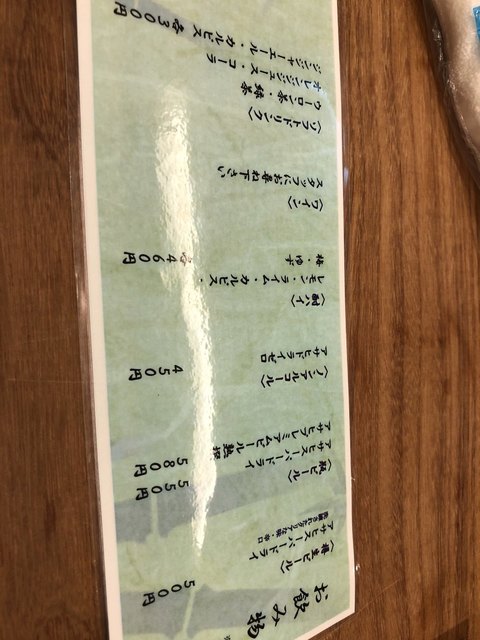 お飲み物
〈樽生ビール〉
アサヒスーパードライ 500円
〈瓶ビール〉
アサヒスーパードライ 550円
アサヒプレミアムビール熟撰 580円
〈ノンアルコール〉
アサヒドライゼロ 450円
〈酎ハイ〉
レモン・ライム・カルピス・
梅・ゆず 各460円
〈ワイン〉
スタッフにお尋ね下さい
〈ソフトドリンク〉
ウーロン茶・緑茶
オレンジジュース・コーラ
ジンジャーエール・カルピス 各300円